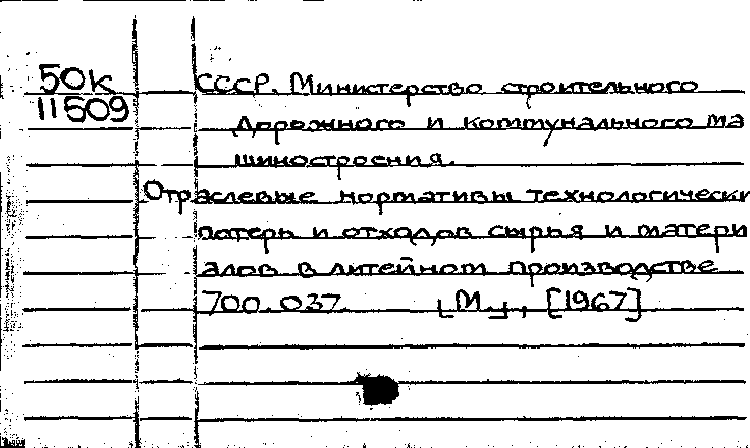 50к СССР. Министерство строительного
11509 дорожного и коммунального ма
шиностроения.
Отраслевые нормативы технологически
потерь и отходов сырья и матери
алов в литейном производстве
700.037. [М.], [1967]